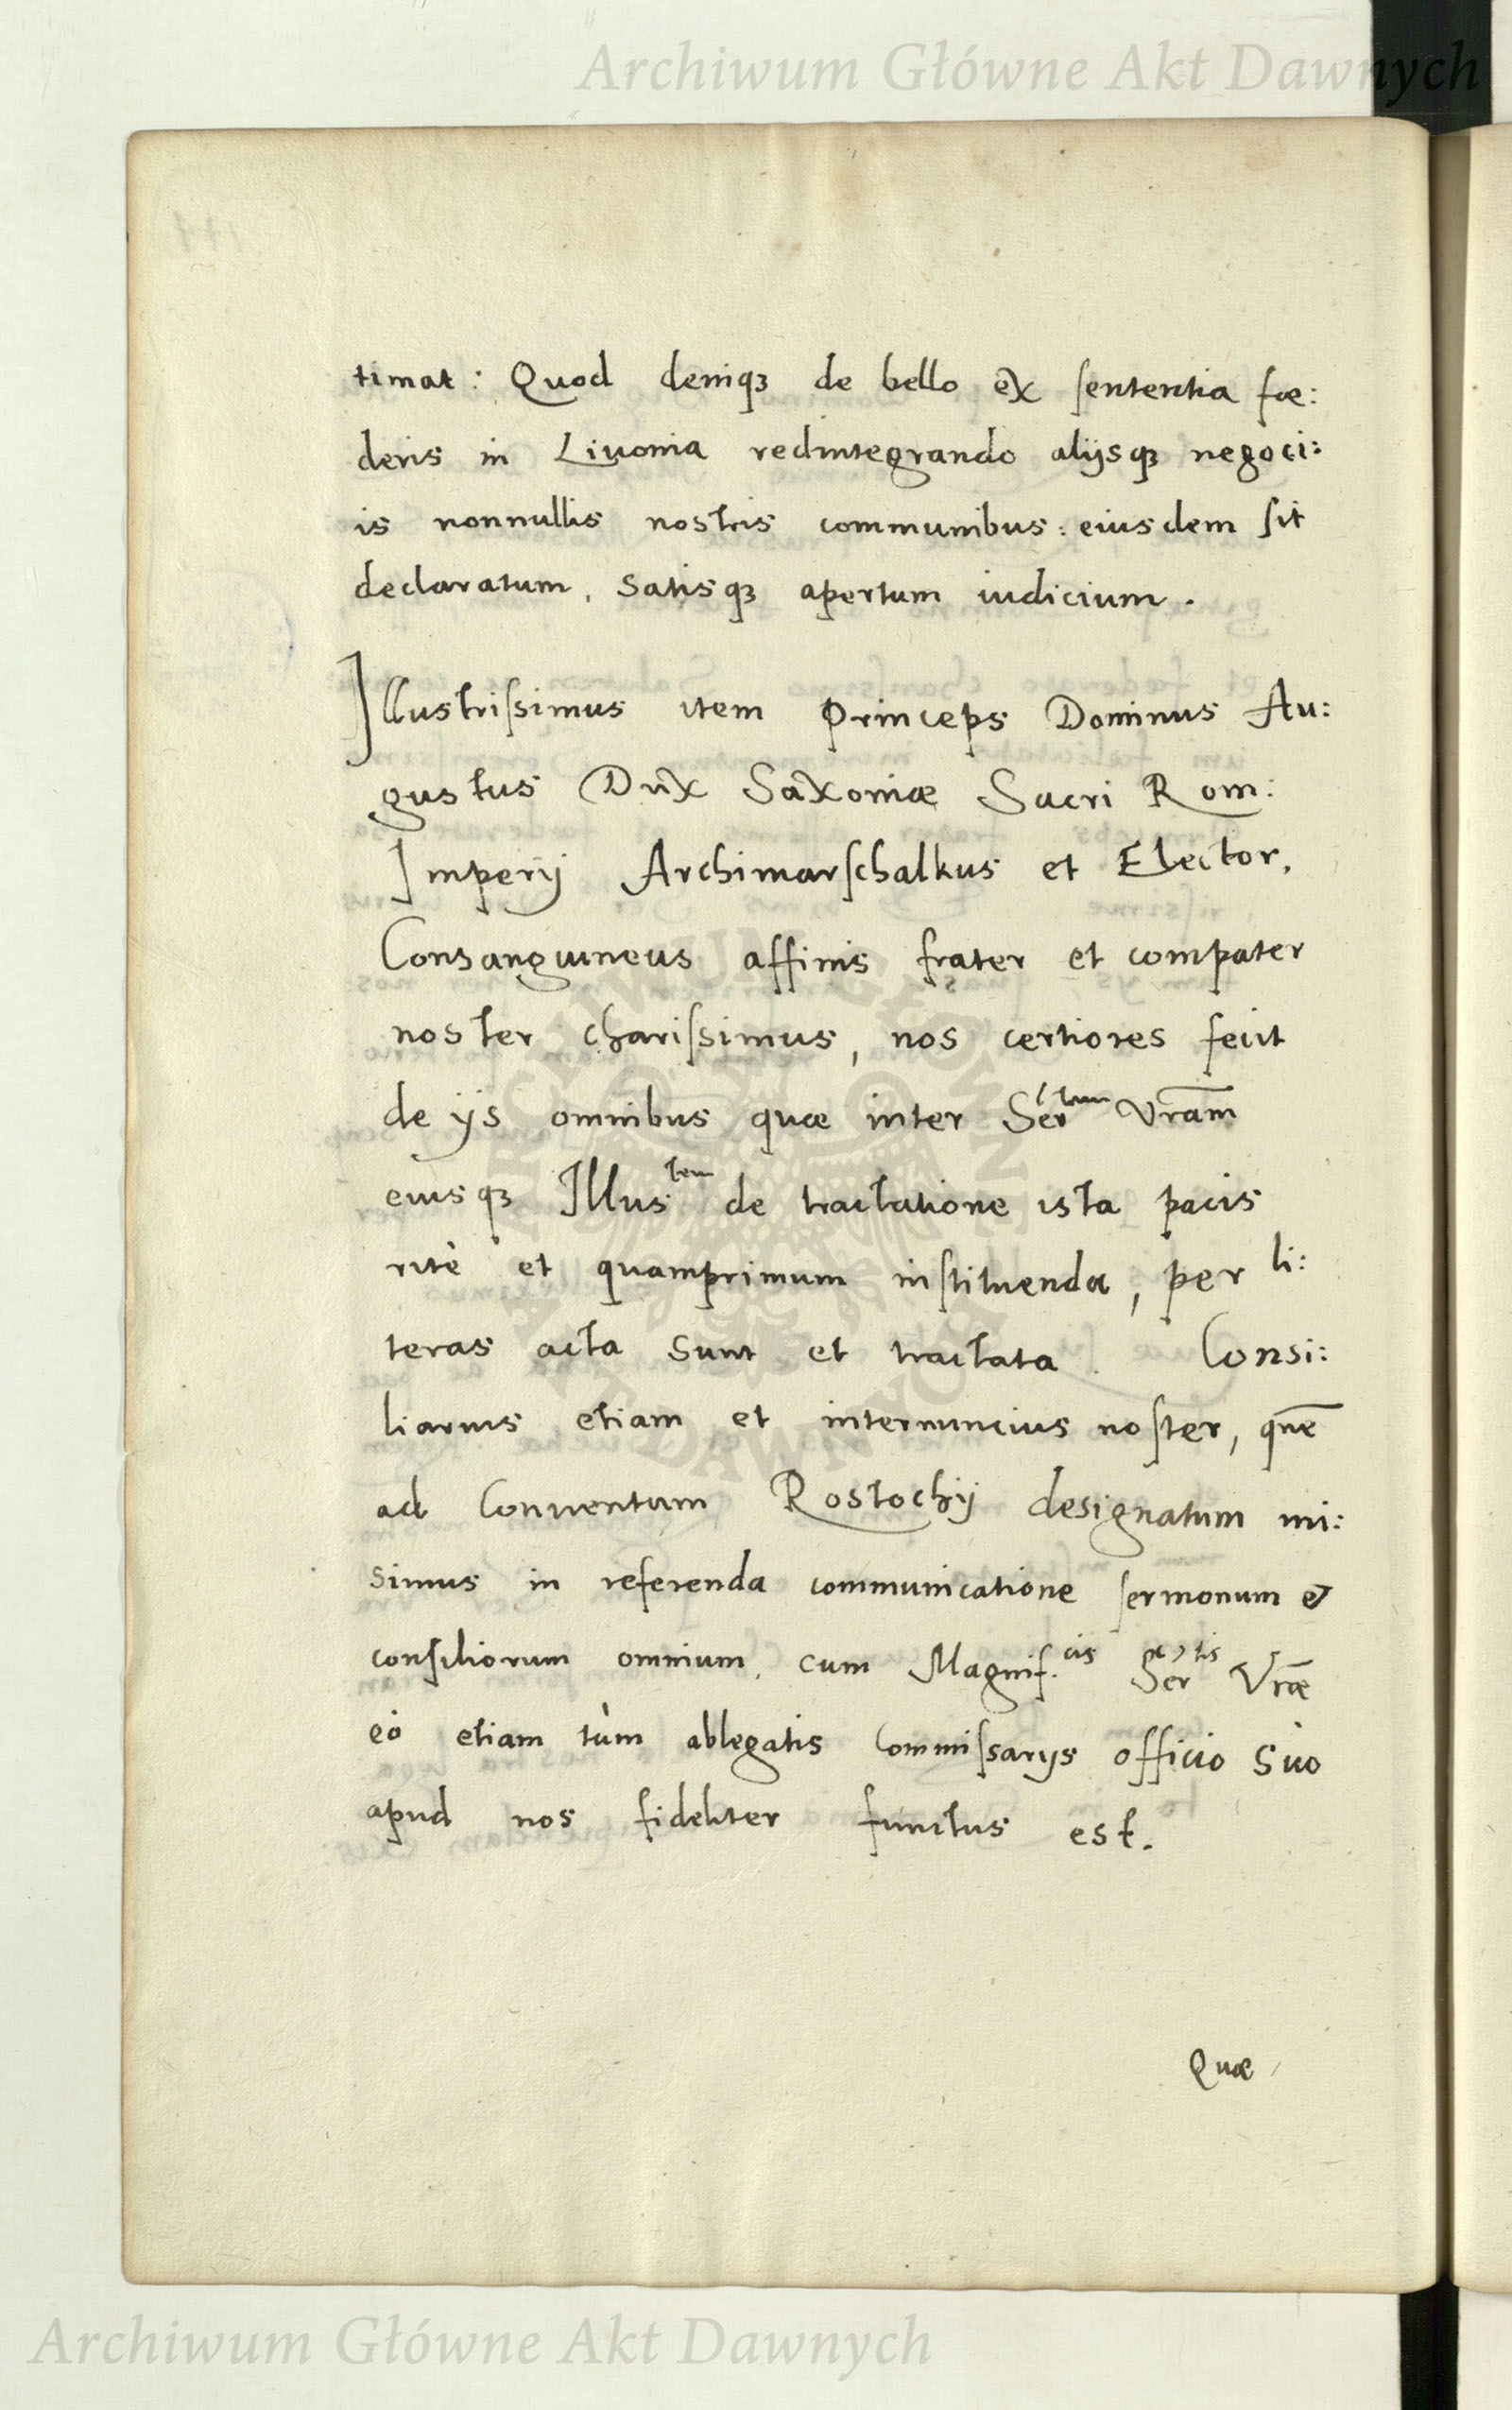 Archiwum Główne Akt Dawnych
timat: Quod deniqȝ de bello ex sententia fœ:
deris in Liuonia redintegrando alijsqȝ negoci:
is nonnullis nostris communibus: eiusdem sit
declaratum, satisqȝ apertum iudicium.
Illustrissimus item Princeps Dominus Au:
gustus Dux Saxoniæ Sacri Rom:
Imperij Archimarschalkus et Elector,
Consanguineus affinis frater et compater
noster charissimus, nos certiores fecit
de ijs omnibus quæ inter Ser^tem Vram̄
eiusqȝ Illus^tem de tractatione ista pacis
ritè et quamprimum instituenda, per li:
teras acta sunt et tractata. Consi:
liarius etiam et internuncius noster, quē
ad Conuentum Rostochij designatum mi:
simus in referenda communicatione sermonum et
consiliorum omnium, cum Magnif.^cis Ser^tis Vrǣ
eò etiam tùm ablegatis Commissarijs officio suo
apud nos fideliter functus est.
Quæ
ARCHIWUM GŁÓWNE AKT DAWNYCH
Archiwum Główne Akt Dawnych